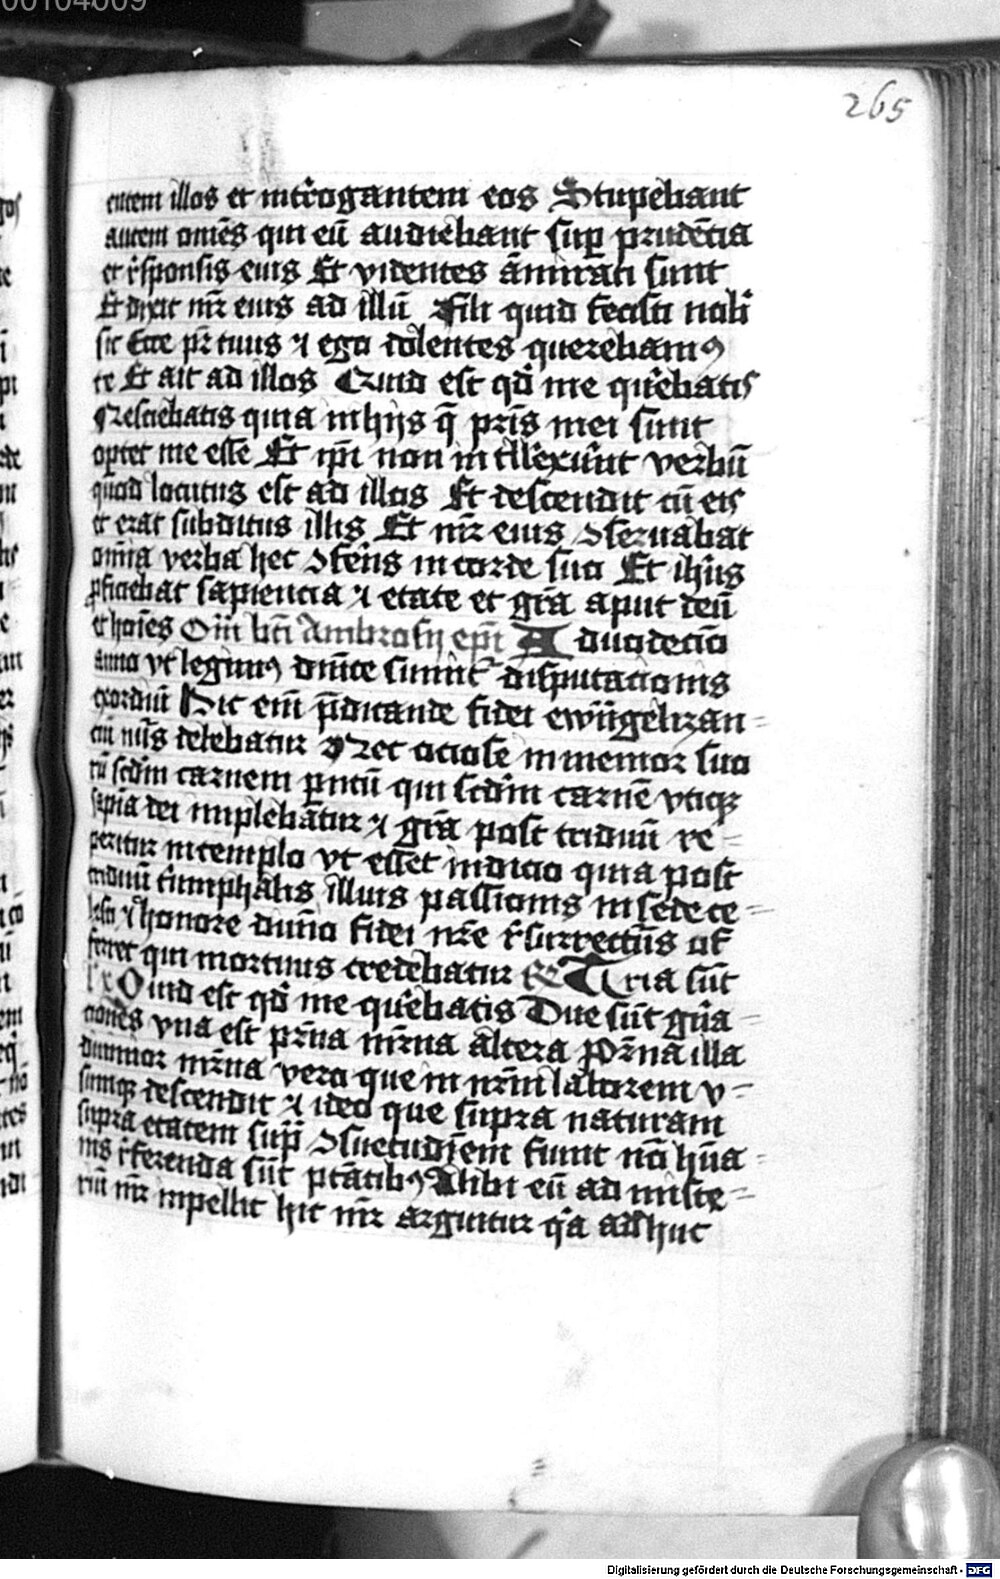 00104009
265
entem illos et int̄rogantem eos Stupebant
autem om̄es qui eū audiebant suꝑ prudētia
et r̄sponsis eius Et videntes āmirati sunt
Et dixit mr̄ eius ad illū Fili quid fecisti nobꝭ
sic Ecce pr̄ tuus ⁊ ego dolentes querebamꝰ
te Et ait ad illos Quid est qd̄ me qūebatis
Nesciebatis quia in hijs q̄ pr̄is mei sunt
oꝑtet me esse Et ip̄i non intell̄exeru̅t verbū
quod locutus est ad illos Et descendit cū eis
et erat subditus illis Et mr̄ eius ꝯseruabat
om̄ia verba hec ꝯfer̄is in corde suo Et ih̄us
ꝓficiebat sapiencia ⁊ etate et grā aput deū
et hoīes Om̄ bt̄i Ambrosij ep̄i A duodecīo
anno vt legimꝰ dn̄ice sumit̄ disputacionis
exordiū Hic em̄ p̄dicande fidei ewāgelizan=
ciū nu̅s debebatur Nec ociose inmemor suo
rū scdm̄ carnem p̄ntū qui scdm̄ carnē vtiqꝫ
sapīa dei implebātur ⁊ grā post triduū re=
peritur in templo vt esset indicio quia post
triduū triumphalis illius passionis in sede ce=
lesti ⁊ honore diuīo fidei nr̄e r̄surrectur̄us of
ferret qui mortuus credebatur Tria sūt
Quid est qd̄ me qūebatis Due sūt gn̄a=
ciones vna est pr̄na mr̄na altera Pr̄na illa
diuinior mr̄na vero que in nr̄m laborem v=
sumqꝫ descendit ⁊ ideo que supra naturam
supra etatem sup̄ ꝯsuetudinem fiunt nō hūa=
nis r̄ferenda sūt ptātibꝰ Alibi eū ad miste=
riū mr̄ inpellit hic mr̄ arguitur qa adhuc
Digitalisierung gefördert durch die Deutsche Forschungsgemeinschaft - DFG